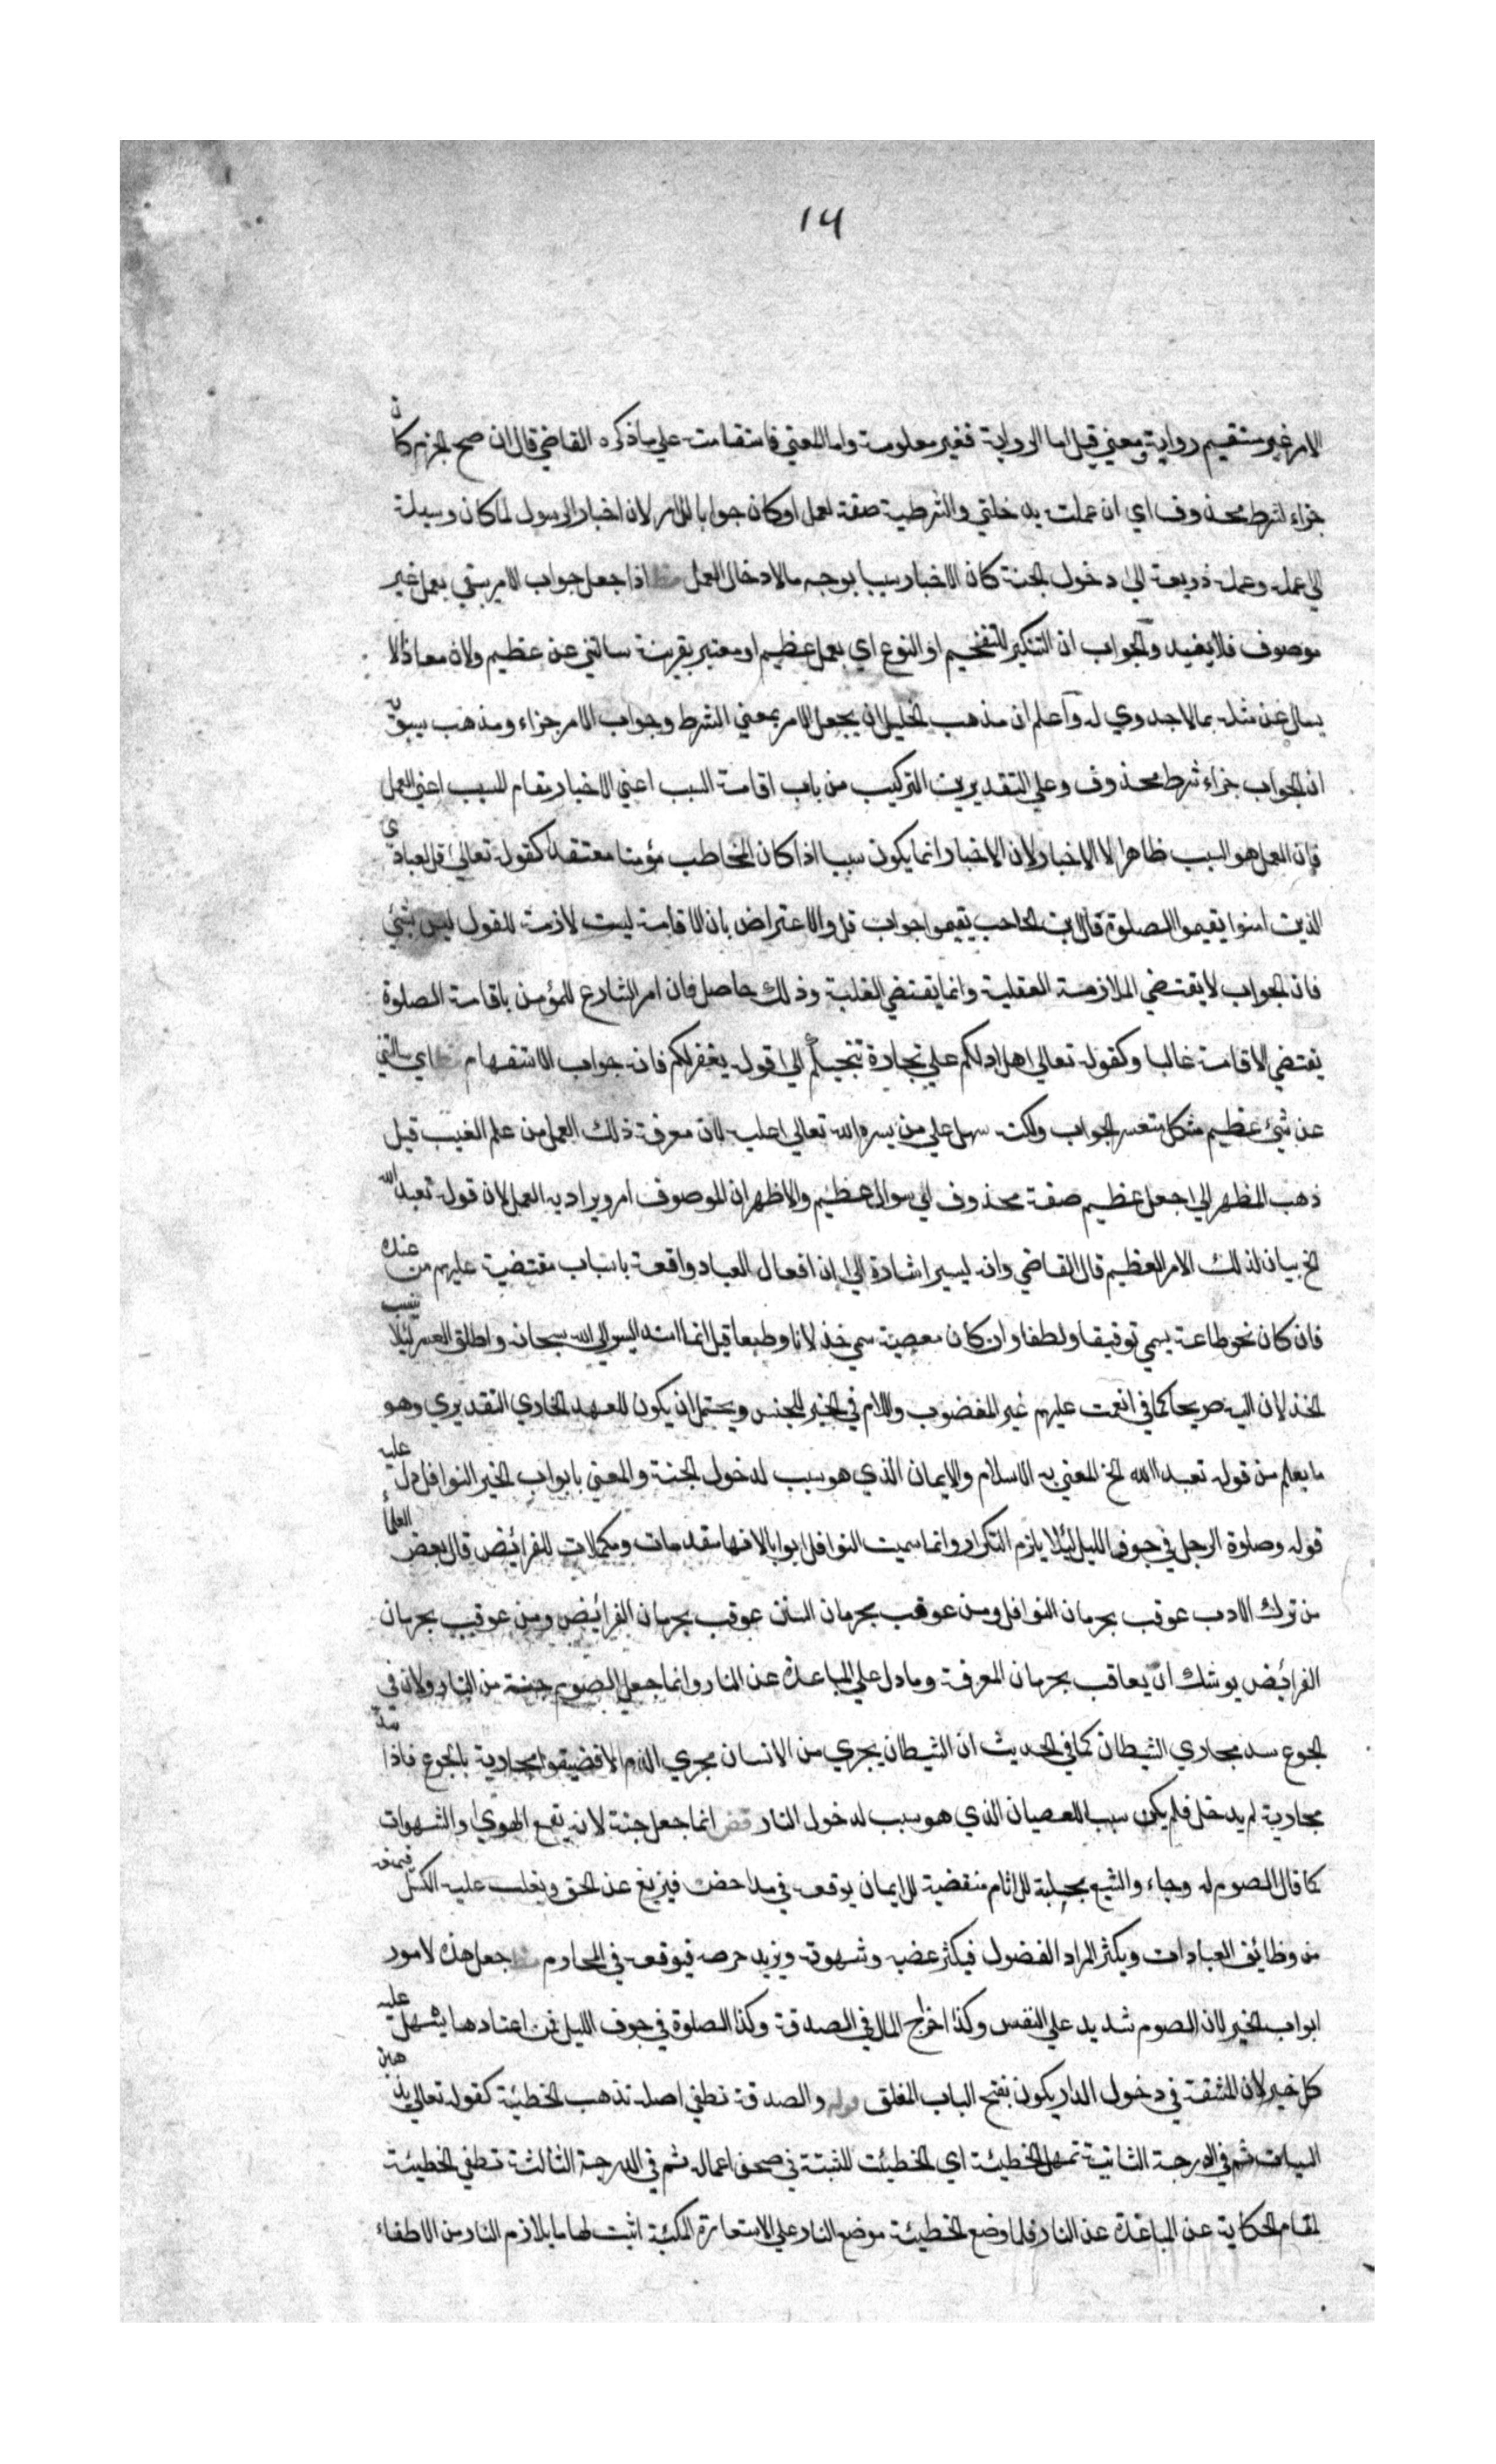 ١٦
الامر غير مستقيم رواية ومعني قيل اما الرواية فغير معلومة واما المعني فاستقامته علي ما ذكره القاضي قال ان صح الجزم كان
جزاء لشرط محذوف اي ان عملته يدخلني والشرطية صفة لعمل او كان جوابا للامر لان اخبار الرسول لما كان وسيلة
الي عمله وعمله ذريعة الي دخول الجنة كان الاخبار سببا بوجه ما لادخال العمل اذا جعل جواب الامر يبقي بعمل غير
موصوف فلا يفيد والجواب ان التنكير للتفخيم او النوع اي بعمل عظيم او معتبر بقرينة سالتني عن عظيم ولان معاذا لا
يسال عن مثله بما لا جدوي له واعلم ان مذهب الخليل ان يجعل الامر بمعني الشرط وجواب الامر جزاء ومذهب سيبويه
ان الجواب جزاء شرط محذوف وعلي التقديرين التركيب من باب اقامة السبب اعني الاخبار مقام المسبب اعني العمل
فان العمل هو السبب ظاهرا لا الاخبار لان الاخبار انما يكون سببا اذا كان المخاطب مؤمنا معتقدا كقوله تعالي قل لعبادي
الذين امنوا يقيموا الصلوة قال ابن الحاجب يقيموا جواب قل والاعتراض بان الاقامة ليست لازمة للقول ليس بشئ
فان الجواب لا يقتضي الملازمة العقلية وانما يقتضي الغلبة وذلك حاصل فان امر الشارع للمؤمن باقامة الصلوة
يقتضي الاقامة غالبا وكقوله تعالي هل ادلكم علي تجارة تنجيكم الي قوله يغفر لكم فانه جواب الاستفهام اي سالتني
عن شئ عظيم مشكل متعسر الجواب ولكنه سهل علي من يسره الله تعالي عليه لان معرفة ذلك العمل من علم الغيب قيل
ذهب المظهر الي جعل عظيم صفة محذوف اي سوال عظيم والاظهر ان الموصوف امر ويراد به العمل لان قوله تعبد الله
الخ بيان لذلك الامر العظيم قال القاضي وانه ليسير اشارة الي ان افعال العباد واقعة باسباب مقتضية عليهم من عنده
فان كان نحو طاعة يسمي توفيقا ولطفا وان كان معصية سمي خذلانا وطبعا قيل انما اسند اليسر الي الله سبحانه واطلق العسر لئلا ينسب
الخذلان اليه صريحا كما في انعمت عليهم غير المغضوب واللام في الخير للجنس ويحتمل ان يكون للعهد الخارجي التقديري وهو
ما يعلم من قوله تعبد الله الخ المعني به الاسلام والايمان الذي هو سبب لدخول الجنة والمعني بابواب الخير النوافل دل عليه
قوله وصلوة الرجل في جوف الليل لئلا يلزم التكرار وانما سميت النوافل ابوابا لانها مقدمات ومكملات للفرائض قال بعض العلماء
من ترك الادب عوقب بحرمان النوافل ومن عوقب بحرمان السنن عوقب بحرمان الفرائض ومن عوقب بحرمان
الفرائض يوشك ان يعاقب بحرمان المعرفة وما دل علي المباعدة عن النار وانما جعل الصوم جنة من النار ولان في
الجوع سد مجاري الشيطان كما في الحديث ان الشيطان يجري من الانسان مجري الدم الا فضيقوا مجاريه بالجوع فاذا سد
مجاريه لم يدخل فلم يكن سببا للعصيان الذي هو سبب لدخول النار قض انما جعل جنة لانه يقمع الهوي والشهوات
كما قال الصوم له وجاء والشبع مجلبة للاثام منقضية للايمان يوقعه في مداحض فيزيغ عن الحق ويغلب عليه الكسل فيمنعه
من وظائف العبادات ويكثر المراد الفضول فيكثر غضبه وشهوته ويزيد حرصه فيوقعه في المحارم جعل هذه الامور
ابواب الخير لان الصوم شديد علي النفس وكذا اخراج المال في الصدقة وكذا الصلوة في جوف الليل فمن اعتادها يسهل عليه
كل خير لان المشقة في دخول الدار يكون بفتح الباب المغلق قوله والصدقة تطفي اصله تذهب الخطيئة كقوله تعالي يذهبن
السيئات ثم في الدرجة الثانية تمحو الخطيئة اي الخطيئة المثبتة في صحف اعماله ثم في الدرجة الثالثة تطفي الخطيئة
لمقام الحكاية عن المباعدة عن النار فلما وضع الخطيئة موضع النار علي الاستعارة المكنية اثبت لها ما يلازم النار من الاطفاء